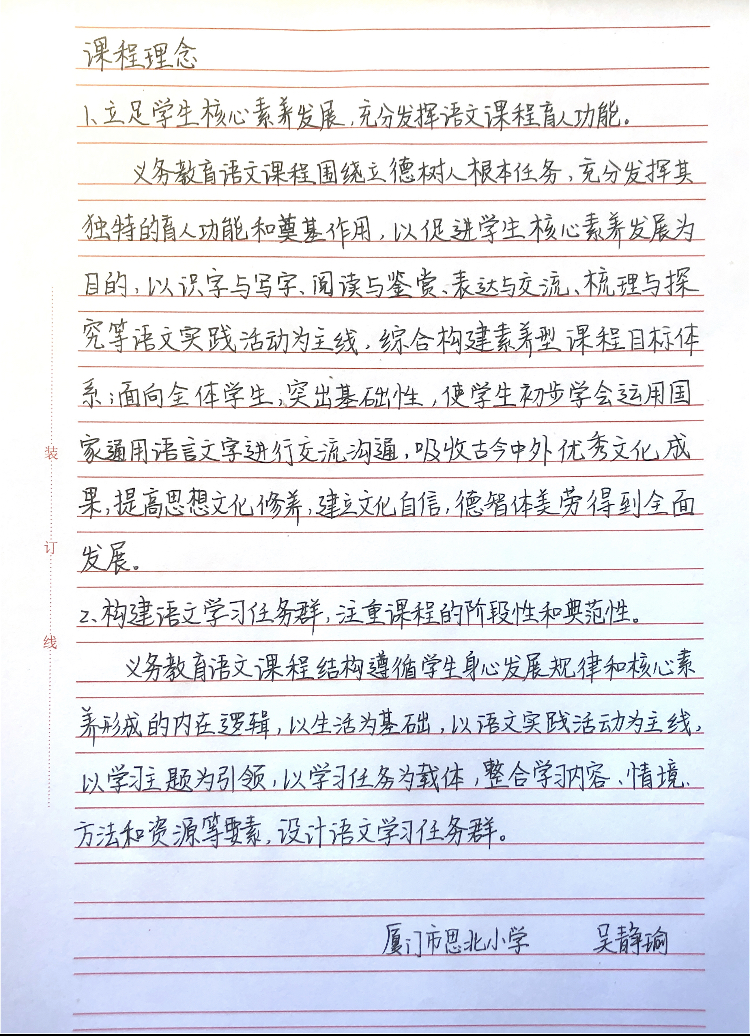 课程理念
1、立足学生核心素养发展,充分发挥语文课程育人功能。
义务教育语文课程围绕立德树人根本任务,充分发挥其
独特的育人功能和奠基作用,以促进学生核心素养发展为
目的,以识字与写字、阅读与鉴赏、表达与交流、梳理与探
究等语文实践活动为主线,综合构建素养型课程目标体
系;面向全体学生,突出基础性,使学生初步学会运用国
家通用语言文字进行交流沟通,吸收古今中外优秀文化成
果,提高思想文化修养,建立文化自信,德智体美劳得到全面
发展。
2、构建语文学习任务群,注重课程的阶段性和典范性。
义务教育语文课程结构遵循学生身心发展规律和核心素
养形成的内在逻辑,以生活为基础,以语文实践活动为主线,
以学习主题为引领,以学习任务为载体,整合学习内容、情境、
方法和资源等要素,设计语文学习任务群。
厦门市思北小学 吴静瑜
装
订
线